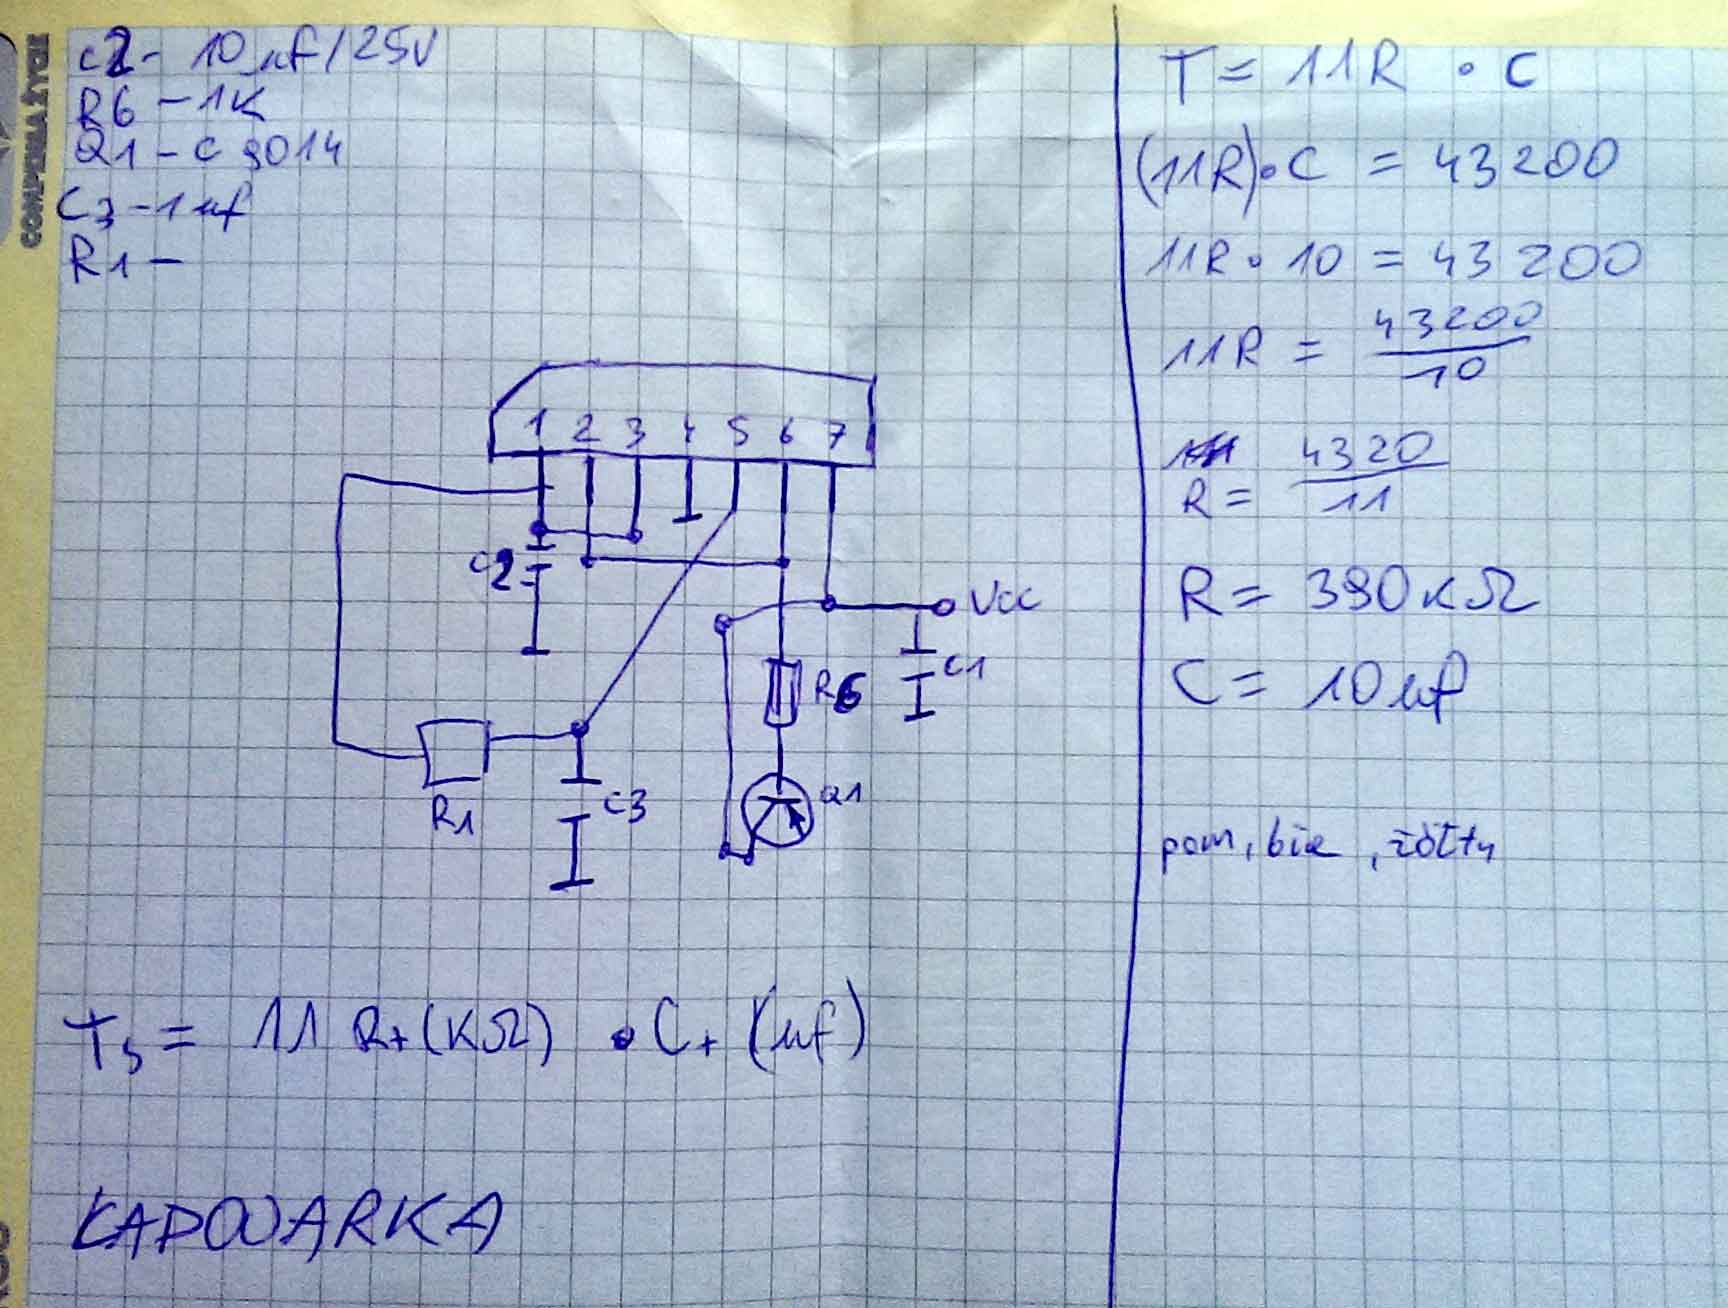 C2 - 10 uf/25V
R6 - 1K
Q1 - C 9014
C3 - 1 uf
R1 -
1 2 3 4 5 6 7
C2
Vcc
C1
R6
Q1
R1
C3
Ts = 11 R+ (KΩ) • C+ (uf)
ŁADOWARKA
T = 11R • C
(11R) • C = 43200
11R • 10 = 43200
11R = 43200
10
4320
R = 11
R = 390KΩ
C = 10 uf
pom, bia, żółty